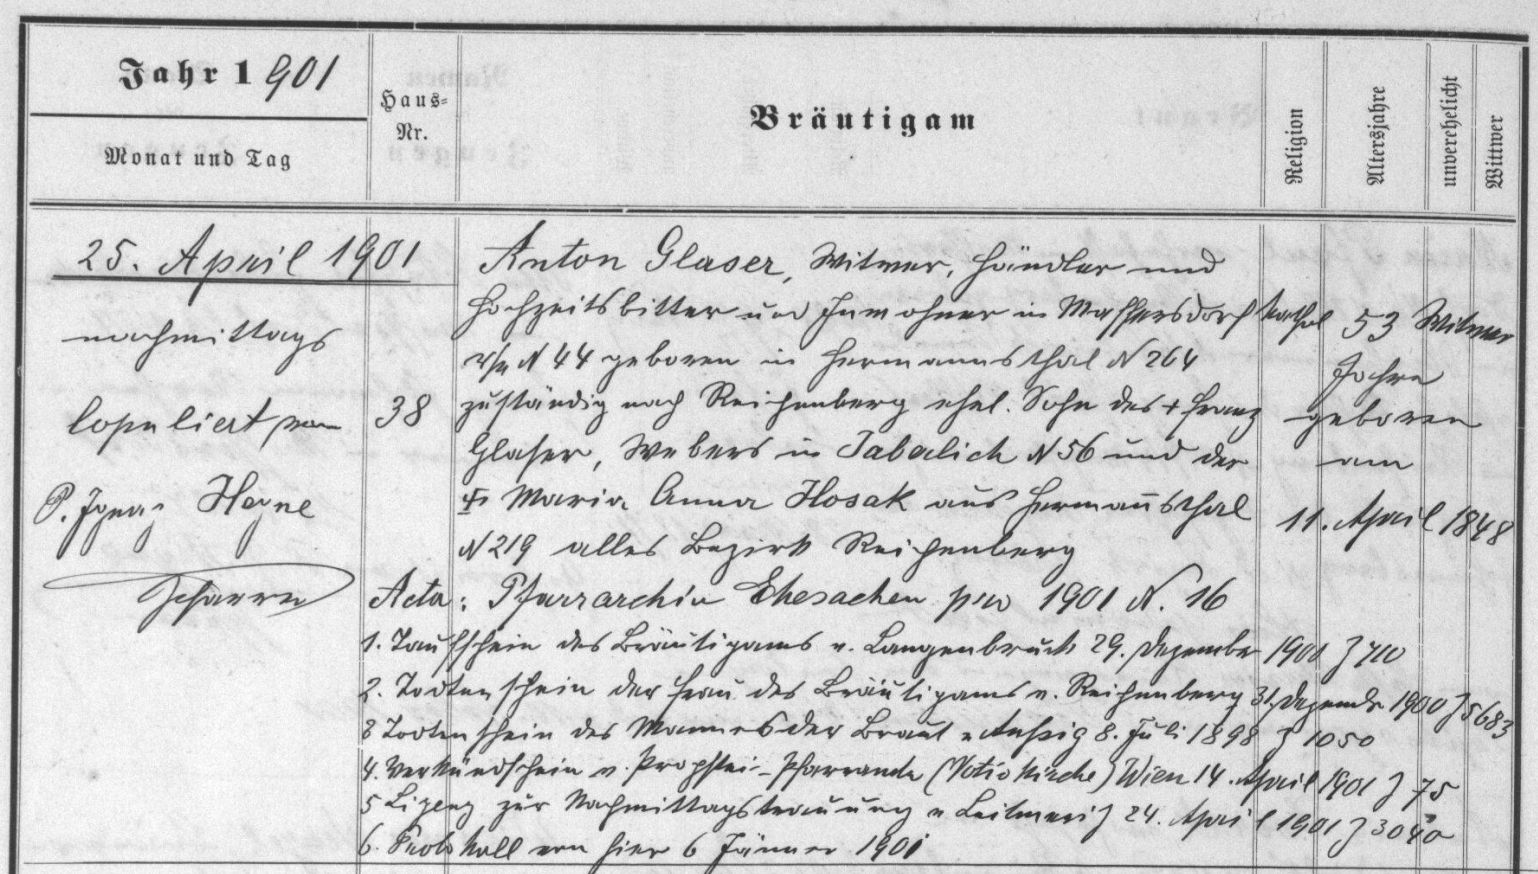 Jahr 1901
Monat und Tag
Haus-
Nr.
Bräutigam
Religion
Altersjahre
unverehelicht
Wittwer
25. April 1901
nachmittags
copuliert von
P. Ignaz Heyne
Pfarrer
38
Anton Glaser, Witwer, Händler und
Hochzeitsbitter und Inwohner in Maffersdorf
N 44 geboren in Hermannsthal N 264
zuständig nach Reichenberg ehel. Sohn des + Franz
Glaser, Webers in Jaberlich N 56 und der
Maria Anna Hosak aus Hermannsthal
N 219 alles Bezirk Reichenberg
kathol
53
Jahre
geboren
am
11. April 1848
Witwer
Acta: Pfarrarchiv Ehesachen pro 1901 N. 16
1. Taufschein des Bräutigams v. Langenbruck 29. Dezember
2. Todtenschein der Frau des Bräutigams v. Reichenberg 31. Dezemb 1900 Z 5683
3 Todtenschein des Mannes der Braut v Aussig 8. Juli 1898 Z 1050
4. Verkündschein v. Propstei-Pfarramte (Votivkirche) Wien 14. April 1901 Z 75
5 Lizenz zur Nachmittagstrauung v Leitmeritz 24. April 1901 Z 3040
6. Protokoll von hier 6 Jänner 1901